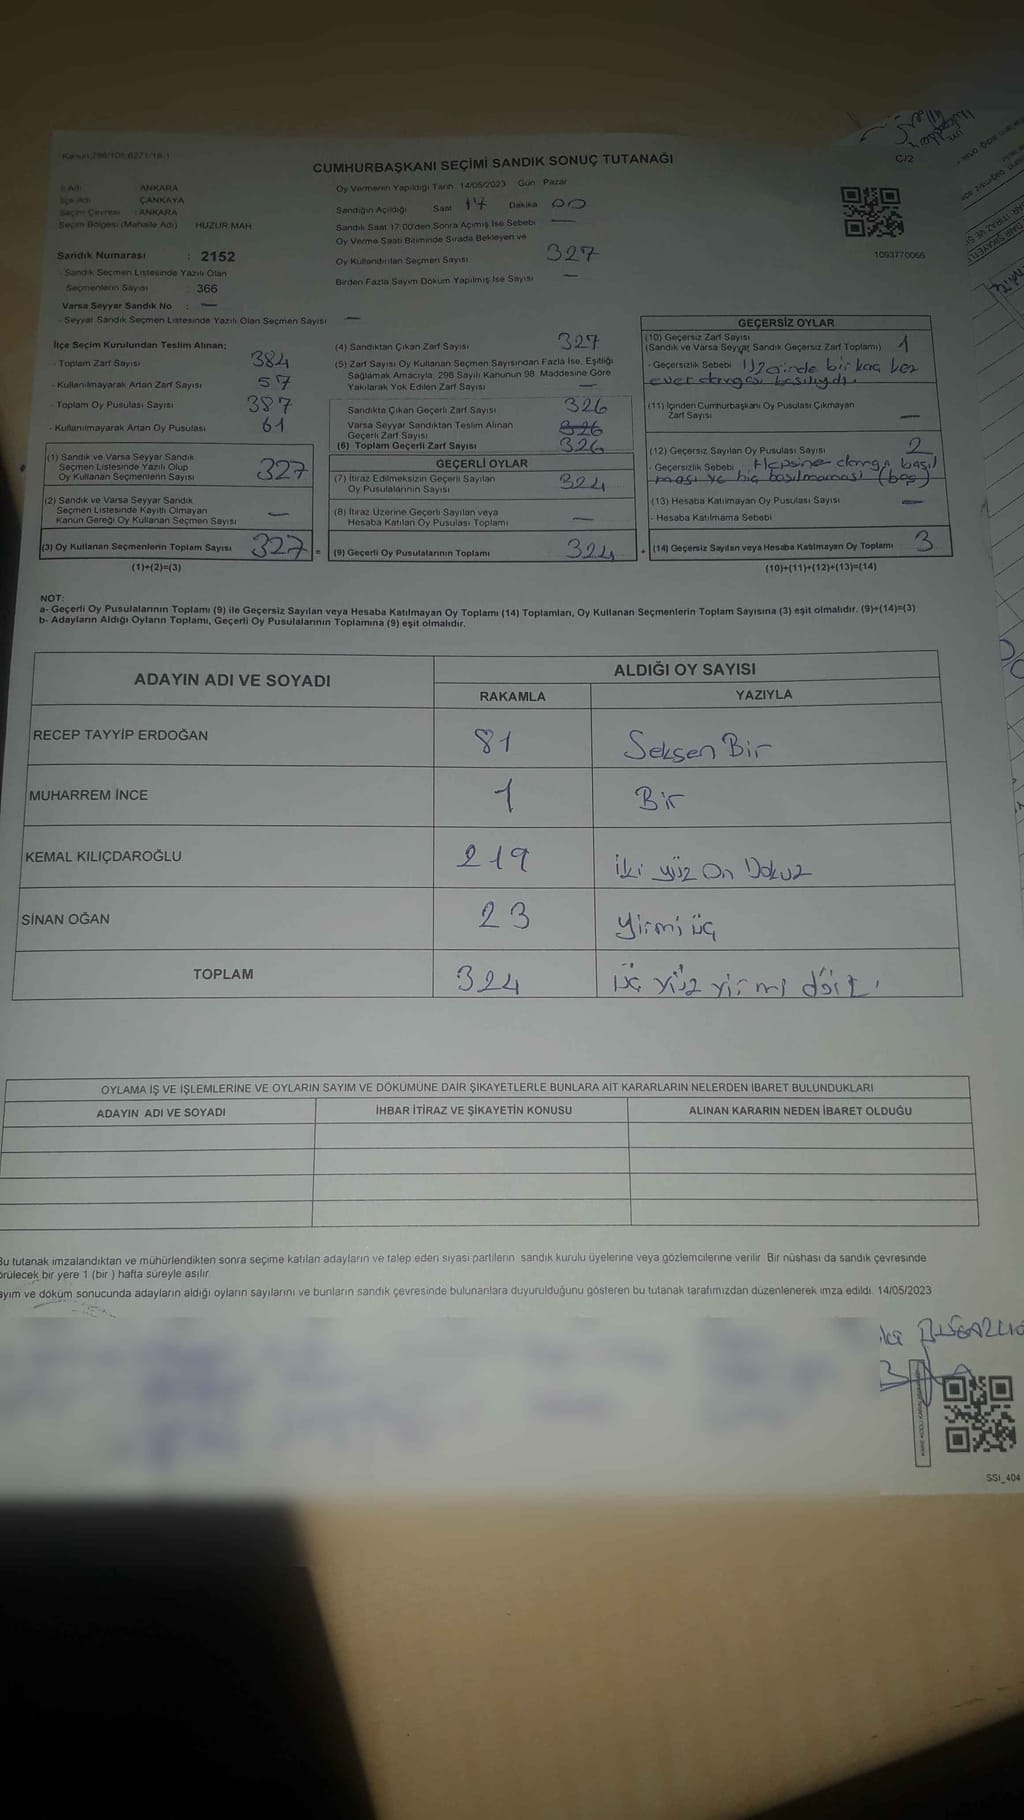 Kanun 298/105 6271/18-1
C/2
CUMHURBAŞKANI SEÇİMİ SANDIK SONUÇ TUTANAĞI
İl Adı ANKARA
İlçe Adı ÇANKAYA
Seçim Çevresi : ANKARA
Seçim Bölgesi (Mahalle Adı) HUZUR MAH
Sandık Numarası : 2152
- Sandık Seçmen Listesinde Yazılı Olan
Seçmenlerin Sayısı : 366
Varsa Seyyar Sandık No : —
- Seyyar Sandık Seçmen Listesinde Yazılı Olan Seçmen Sayısı —
Oy Vermenin Yapıldığı Tarih 14/05/2023 Gün Pazar
Sandığın Açıldığı Saat 17 Dakika 00
Sandık Saat 17.00'den Sonra Açılmış İse Sebebi —
Oy Verme Saati Bitiminde Sırada Bekleyen ve
Oy Kullandırılan Seçmen Sayısı 327
Birden Fazla Sayım Döküm Yapılmış İse Sayısı —
1093770066
İlçe Seçim Kurulundan Teslim Alınan;
- Toplam Zarf Sayısı 384
- Kullanılmayarak Artan Zarf Sayısı 57
- Toplam Oy Pusulası Sayısı 387
- Kullanılmayarak Artan Oy Pusulası 61
(1) Sandık ve Varsa Seyyar Sandık
Seçmen Listesinde Yazılı Olup
Oy Kullanan Seçmenlerin Sayısı 327
(2) Sandık ve Varsa Seyyar Sandık
Seçmen Listesinde Kayıtlı Olmayan
Kanun Gereği Oy Kullanan Seçmen Sayısı —
(3) Oy Kullanan Seçmenlerin Toplam Sayısı 327 =
(1)+(2)=(3)
(4) Sandıktan Çıkan Zarf Sayısı 327
(5) Zarf Sayısı Oy Kullanan Seçmen Sayısından Fazla İse, Eşitliği
Sağlamak Amacıyla, 298 Sayılı Kanunun 98. Maddesine Göre
Yakılarak Yok Edilen Zarf Sayısı —
Sandıkta Çıkan Geçerli Zarf Sayısı 326
Varsa Seyyar Sandıktan Teslim Alınan
Geçerli Zarf Sayısı 326
(6) Toplam Geçerli Zarf Sayısı 326
GEÇERLİ OYLAR
(7) İtiraz Edilmeksizin Geçerli Sayılan
Oy Pusulalarının Sayısı 324
(8) İtiraz Üzerine Geçerli Sayılan veya
Hesaba Katılan Oy Pusulası Toplamı —
(9) Geçerli Oy Pusulalarının Toplamı 324 +
GEÇERSİZ OYLAR
(10) Geçersiz Zarf Sayısı
(Sandık ve Varsa Seyyar Sandık Geçersiz Zarf Toplamı) 1
- Geçersizlik Sebebi bir kaç kez
evet damgası basılıydı.
(11) İçinden Cumhurbaşkanı Oy Pusulası Çıkmayan
Zarf Sayısı —
(12) Geçersiz Sayılan Oy Pusulası Sayısı 2
- Geçersizlik Sebebi Hepsine damga basıl
ması ve hiç basılmaması (boş)
(13) Hesaba Katılmayan Oy Pusulası Sayısı —
- Hesaba Katılmama Sebebi
(14) Geçersiz Sayılan veya Hesaba Katılmayan Oy Toplamı 3
(10)+(11)+(12)+(13)=(14)
NOT:
a- Geçerli Oy Pusulalarının Toplamı (9) ile Geçersiz Sayılan veya Hesaba Katılmayan Oy Toplamı (14) Toplamları, Oy Kullanan Seçmenlerin Toplam Sayısına (3) eşit olmalıdır. (9)+(14)=(3)
b- Adayların Aldığı Oyların Toplamı, Geçerli Oy Pusulalarının Toplamına (9) eşit olmalıdır.
ADAYIN ADI VE SOYADI
ALDIĞI OY SAYISI
RAKAMLA YAZIYLA
RECEP TAYYİP ERDOĞAN 81 Seksen Bir
MUHARREM İNCE 1 Bir
KEMAL KILIÇDAROĞLU 219 İki yüz On Dokuz
SİNAN OĞAN 23 Yirmi üç
TOPLAM 324 üç yüz yirmi dört
OYLAMA İŞ VE İŞLEMLERİNE VE OYLARIN SAYIM VE DÖKÜMÜNE DAİR ŞİKAYETLERLE BUNLARA AİT KARARLARIN NELERDEN İBARET BULUNDUKLARI
ADAYIN ADI VE SOYADI İHBAR İTİRAZ VE ŞİKAYETİN KONUSU ALINAN KARARIN NEDEN İBARET OLDUĞU
Bu tutanak imzalandıktan ve mühürlendikten sonra seçime katılan adayların ve talep eden siyasi partilerin sandık kurulu üyelerine veya gözlemcilerine verilir. Bir nüshası da sandık çevresinde
örülecek bir yere 1 (bir ) hafta süreyle asılır.
ayım ve döküm sonucunda adayların aldığı oyların sayılarını ve bunların sandık çevresinde bulunanlara duyurulduğunu gösteren bu tutanak tarafımızdan düzenlenerek imza edildi. 14/05/2023
SSI_404